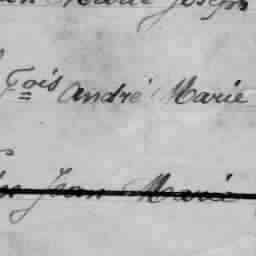 Marie Joseph
Fçois André Marie
Jean Marie